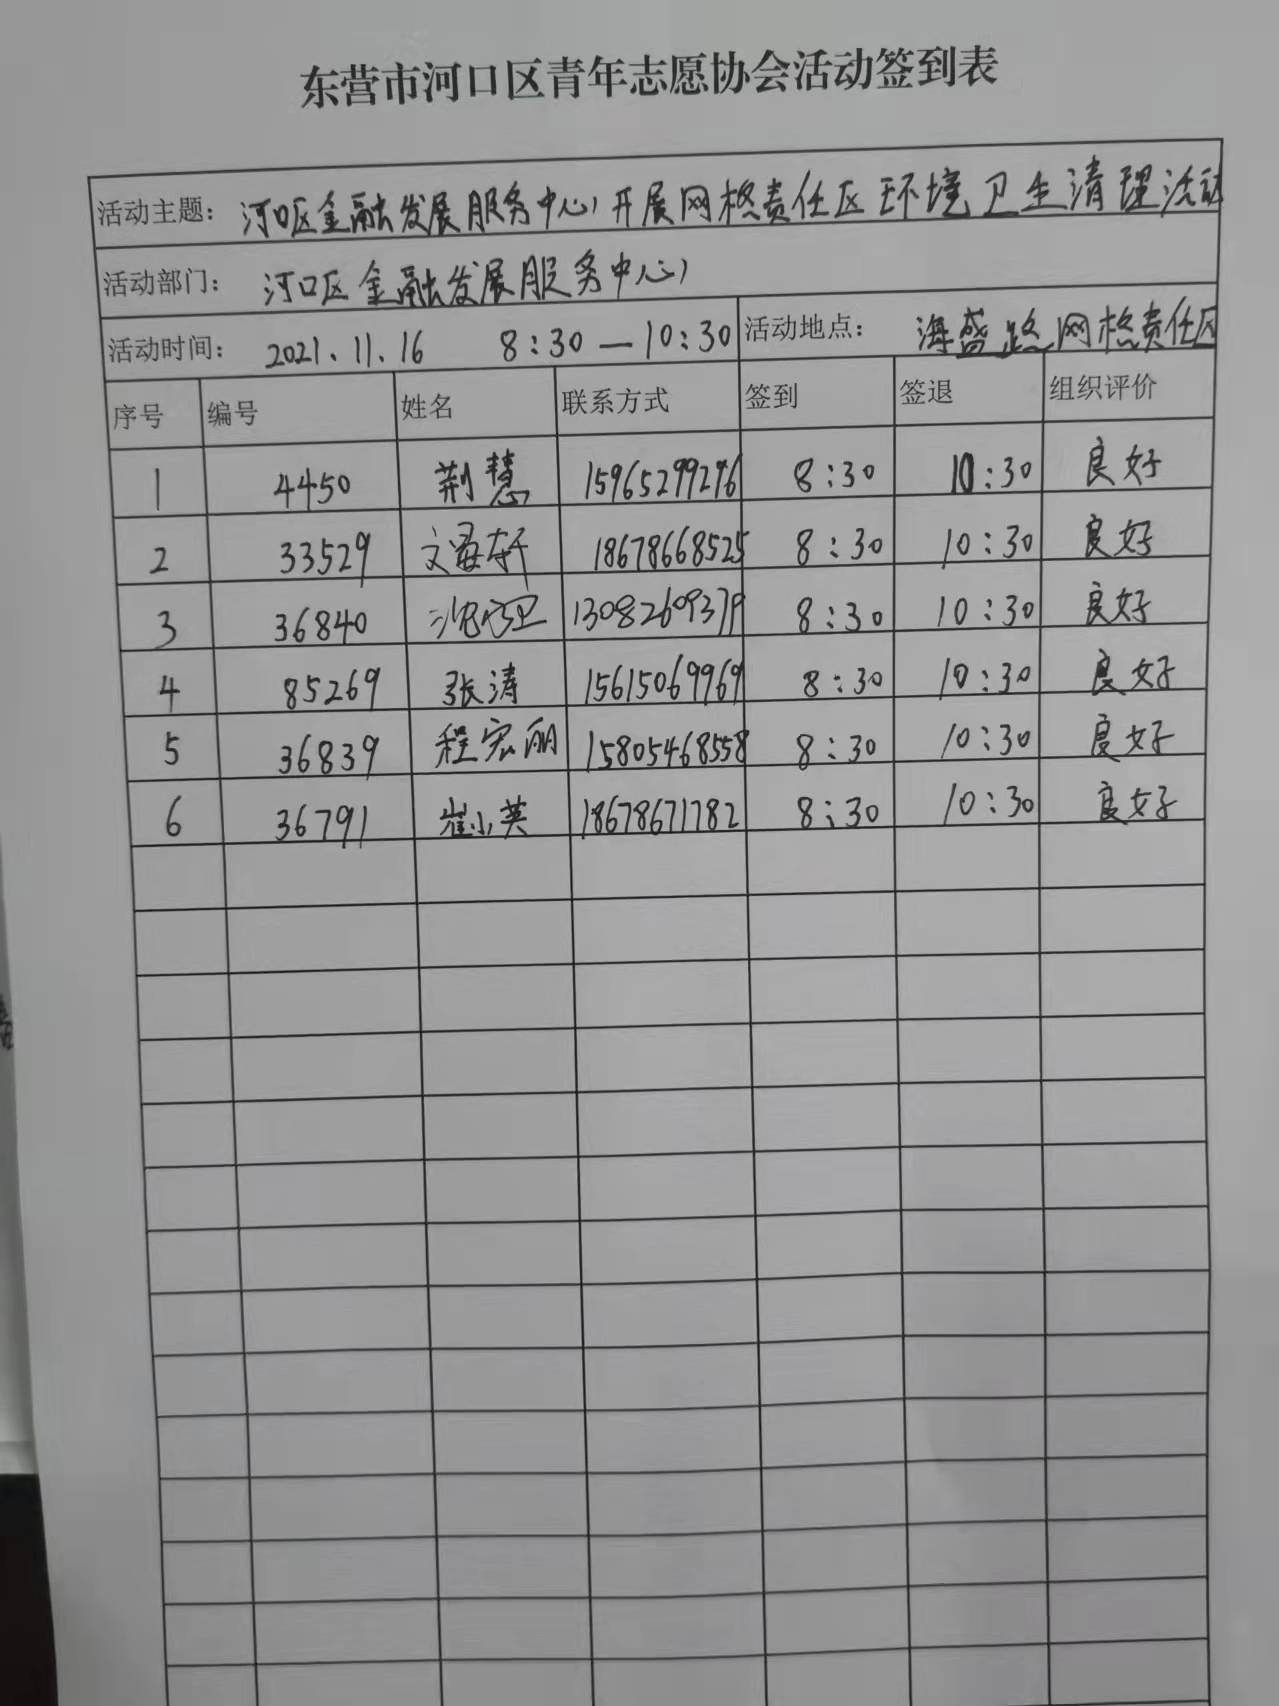 东营市河口区青年志愿协会活动签到表
活动主题： 河口区金融发展服务中心开展网格责任区环境卫生清理活动
活动部门： 河口区金融发展服务中心
活动时间： 2021.11.16 8:30—10:30 活动地点： 海盛路网格责任区
序号 编号 姓名 联系方式 签到 签退 组织评价
1 4450 荆慧 15965299276 8:30 10:30 良好
2 33529 18678668525 8:30 10:30 良好
3 36840 13082609379 8:30 10:30 良好
4 85269 张涛 15615069969 8:30 10:30 良好
5 36839 程宏丽 15805468558 8:30 10:30 良好
6 36791 崔小英 18678671782 8:30 10:30 良好